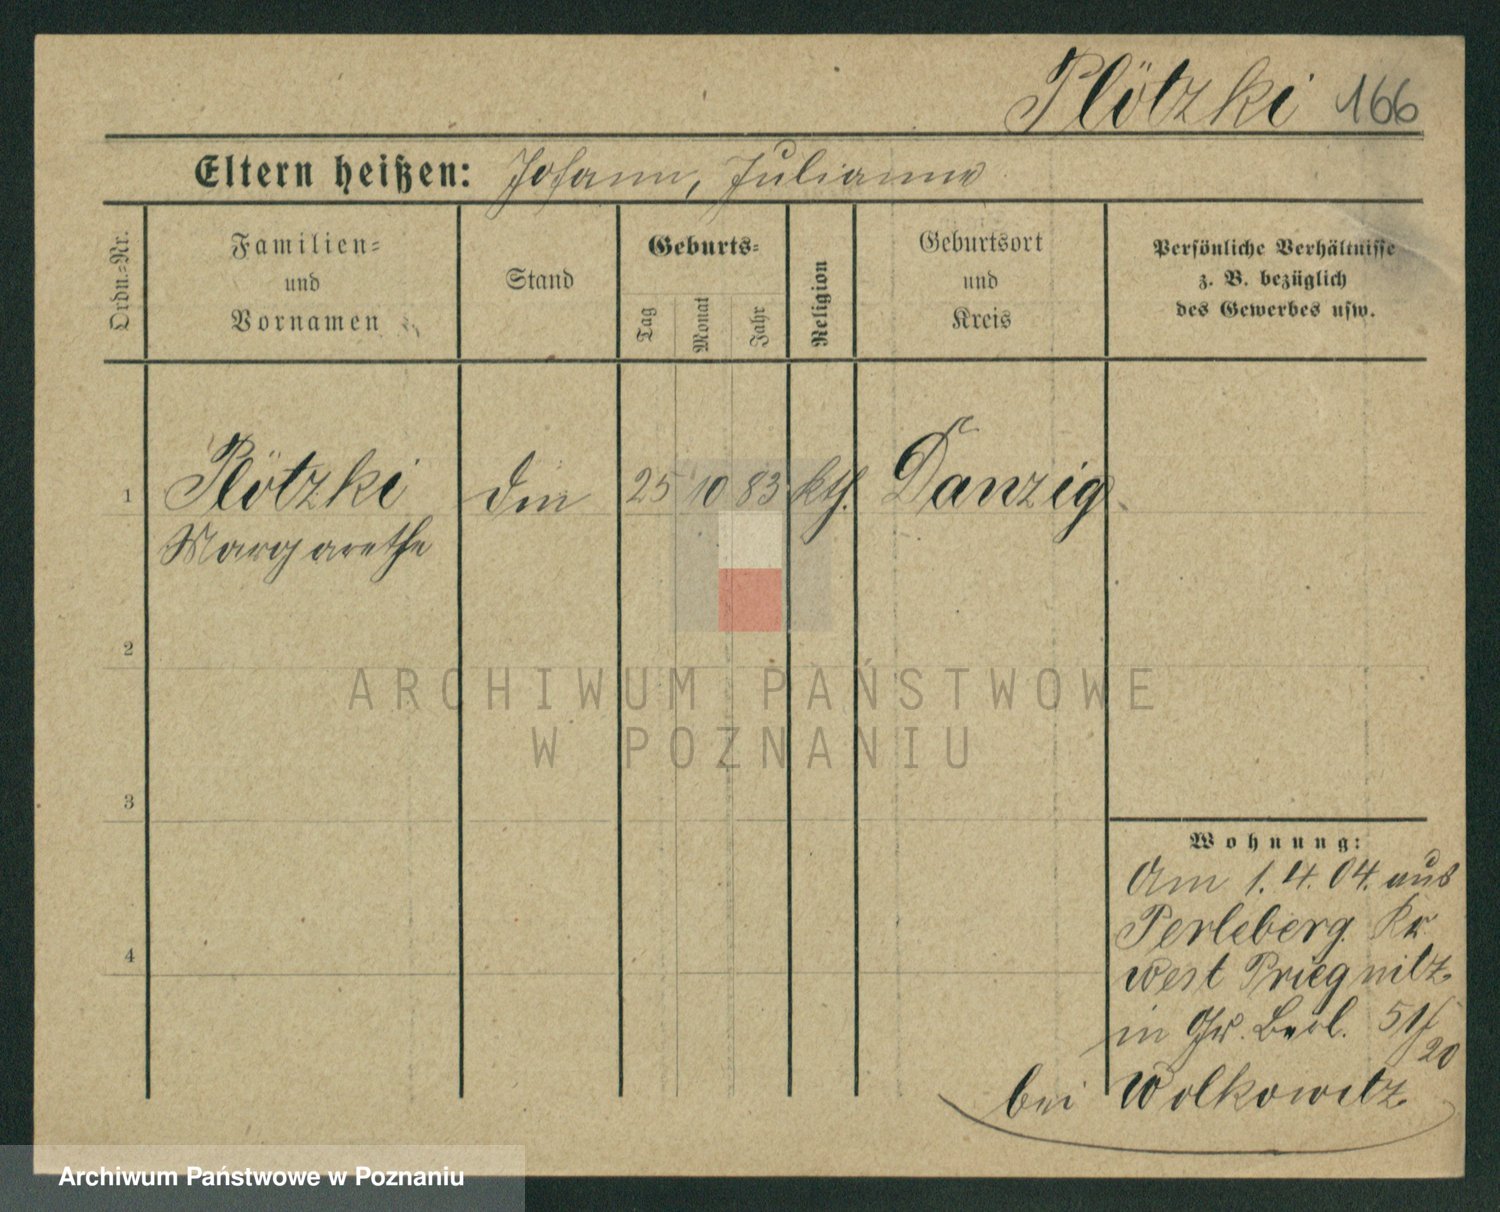 Plötzki 166
Eltern heißen: Johann, Julianne
Ordn.=Nr.
Familien=
und
Vornamen
Stand
Geburts=
Tag
Monat
Jahr
Religion
Geburtsort
und
Kreis
Persönliche Verhältnisse
z. B. bezüglich
des Gewerbes usw.
1 Plötzki 25 10 83 kth. Danzig
Margarethe
2
3
4
ARCHIWUM PAŃSTWOWE
W POZNANIU
Wohnung:
Am 1.4.04. aus
Perleberg Kr.
West Priegnitz
in Gr. Berl. 51/20
bei Wolkowitz
Archiwum Państwowe w Poznaniu